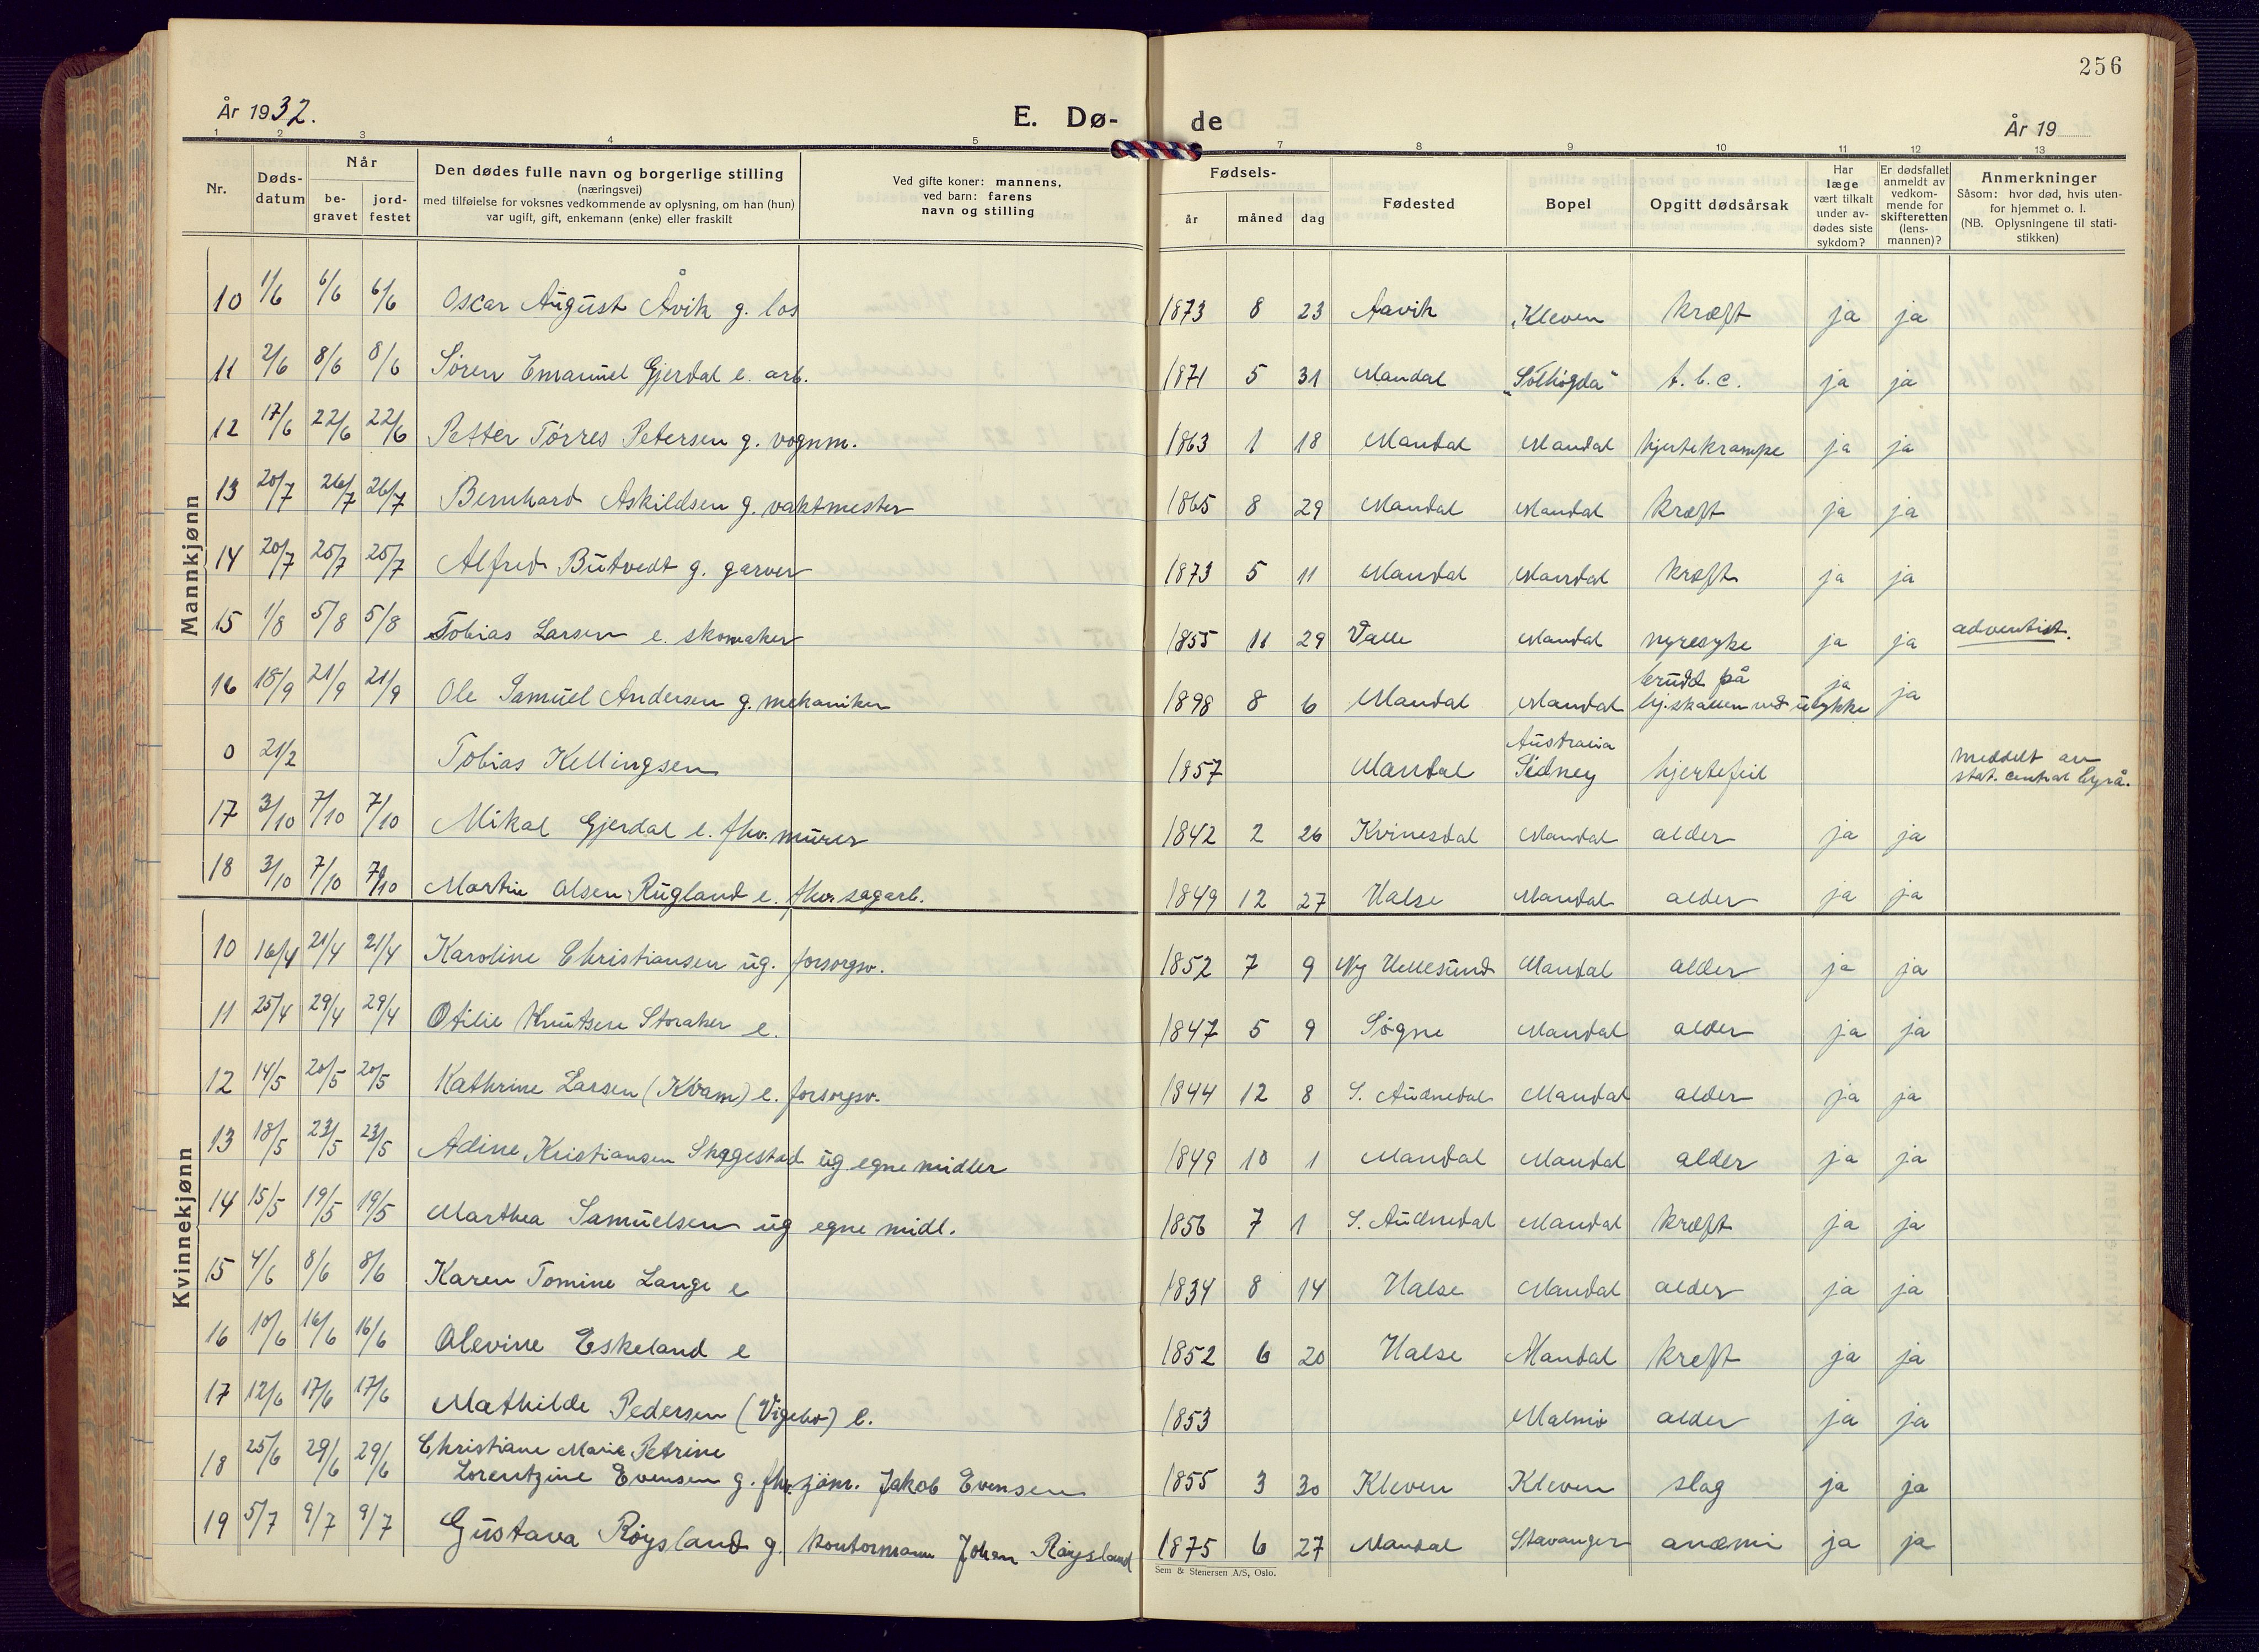 256
År 1932.
E. Dø-
de
År 19
1 2 3 4 5 7 8 9 10 11 12 13
Nr.
Døds-
datum
Når
be-
gravet
jord-
festet
Den dødes fulle navn og borgerlige stilling
(næringsvei)
med tilføielse for voksnes vedkommende av oplysning, om han (hun)
var ugift, gift, enkemann (enke) eller fraskilt
Ved gifte koner: mannens,
ved barn: farens
navn og stilling
Fødsels-
år
måned
dag
Fødested
Bopel
Opgitt dødsårsak
Har
læge
vært tilkalt
under av-
dødes siste
sykdom?
Er dødsfallet
anmeldt av
vedkom-
mende for
skifteretten
(lens-
mannen)?
Anmerkninger
Såsom: hvor død, hvis uten-
for hjemmet o. l.
(NB. Oplysningene til stati-
stikken)
Mannkjønn
10 1/6 6/6 6/6 Oscar August Åvik g. los 1873 8 23 Aavik Kleven kræft ja ja
11 2/6 8/6 8/6 Søren Emanuel Gjerdal e. arb. 1871 5 31 Mandal „Solhøgda" t.b.c. ja ja
12 17/6 22/6 22/6 Petter Tørres Petersen g. vognm. 1863 1 18 Mandal Mandal hjertekrampe ja ja
13 20/7 26/7 26/7 Bernhard Askildsen g. vaktmester 1865 8 29 Mandal Mandal kræft ja ja
14 20/7 25/7 25/7 Alfred Butvedt g. garver 1873 5 11 Mandal Mandal kræft ja ja
15 1/8 5/8 5/8 Tobias Larsen e. skomaker 1855 11 29 Valle Mandal nyresyke ja ja adventist.
16 18/9 21/9 21/9 Ole Samuel Andersen g. mekaniker 1898 8 6 Mandal Mandal brudd på hj.skallen ved ulykke ja ja
0 21/2 Tobias Kellingsen 1857 Mandal Australia Sidney hjertefeil meddelt av stat. central byrå.
17 3/10 7/10 7/10 Mikal Gjerdal e. fhv. murer 1842 2 26 Kvinesdal Mandal alder ja ja
18 3/10 7/10 7/10 Martin Olsen Rugland e. fhv. sagarb. 1849 12 27 Halse Mandal alder ja ja
Kvinnekjønn
10 16/4 21/4 21/4 Karoline Christiansen ug. forsorgsv. 1852 7 9 Ny Hellesund Mandal alder ja ja
11 25/4 29/4 29/4 Otilie Knutsen Storaker e. 1847 5 9 Søgne Mandal alder ja ja
12 14/5 20/5 20/5 Kathrine Larsen (Kvam) e. forsorgsv. 1844 12 8 S. Audnedal Mandal alder ja ja
13 18/5 23/5 23/5 Adine Kristiansen Skeggestad ug egne midler 1849 10 1 Mandal Mandal alder ja ja
14 15/5 19/5 19/5 Marthea Samuelsen ug egne midl. 1856 7 1 S. Audnedal Mandal kræft ja ja
15 4/6 8/6 8/6 Karen Tomine Lange e 1834 8 14 Halse Mandal alder ja ja
16 10/6 16/6 16/6 Olevine Eskeland e 1852 6 20 Halse Mandal kreft ja ja
17 12/6 17/6 17/6 Mathilde Pedersen (Vigebo) e. 1853 Malmö alder ja ja
18 25/6 29/6 29/6 Christiane Marie Petrine
Lorentzine Evensen g. fhv. sjøm. Jakob Evensen 1855 3 30 Kleven Kleven slag ja ja
19 5/7 9/7 9/7 Gustava Røysland g. kontormann Johan Røysland 1875 6 27 Mandal Stavanger anæmi ja ja
Sem & Stenersen A/S, Oslo.